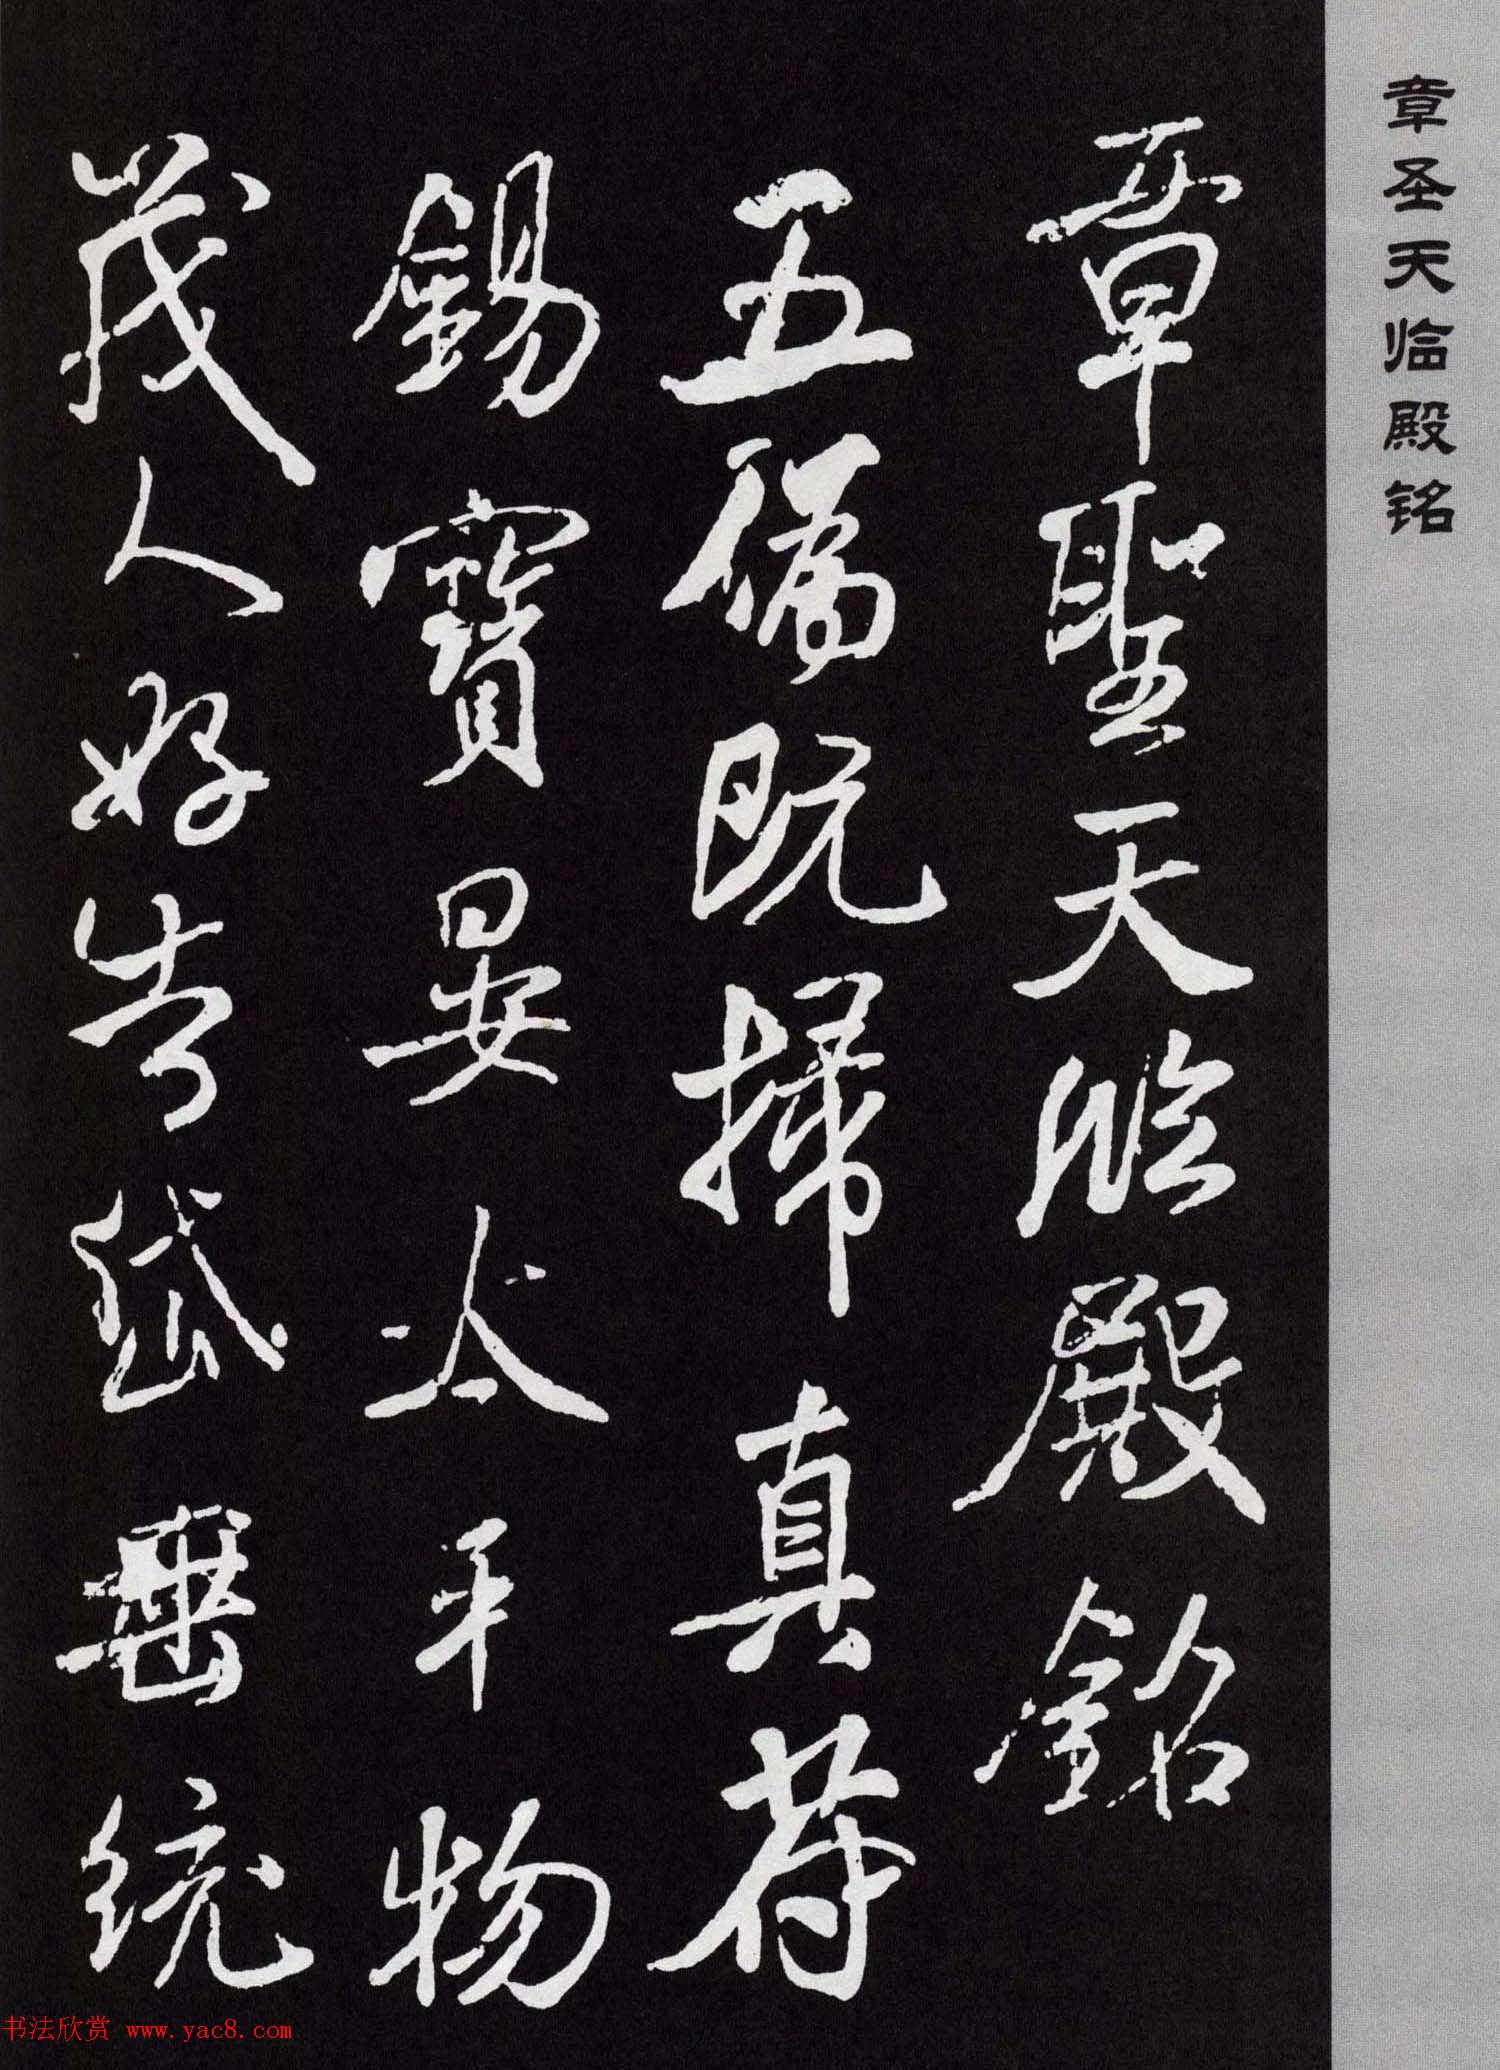 章圣天临殿铭
章聖天臨殿銘
五僞既掃真符
錫寶晏太平物
茂人好告岱垂統
书法欣赏 www.yac8.com